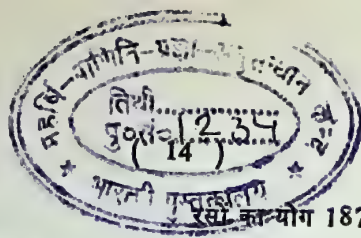 महर्षि-पाणिनि-
तिथी..............
पु०सं० 1234
( 14 )
भारती पुस्तकालय
रसों का योग 187